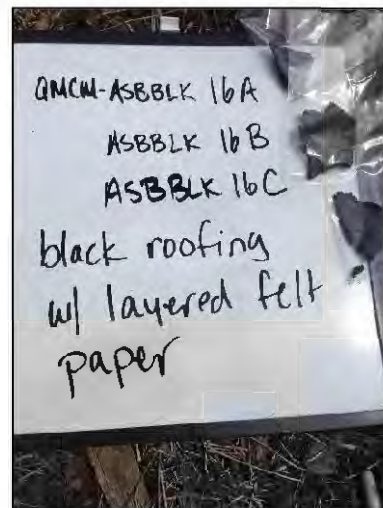 QMCM-ASBBLK 16A
ASBBLK 16B
ASBBLK 16C
black roofing
w/ layered felt
paper